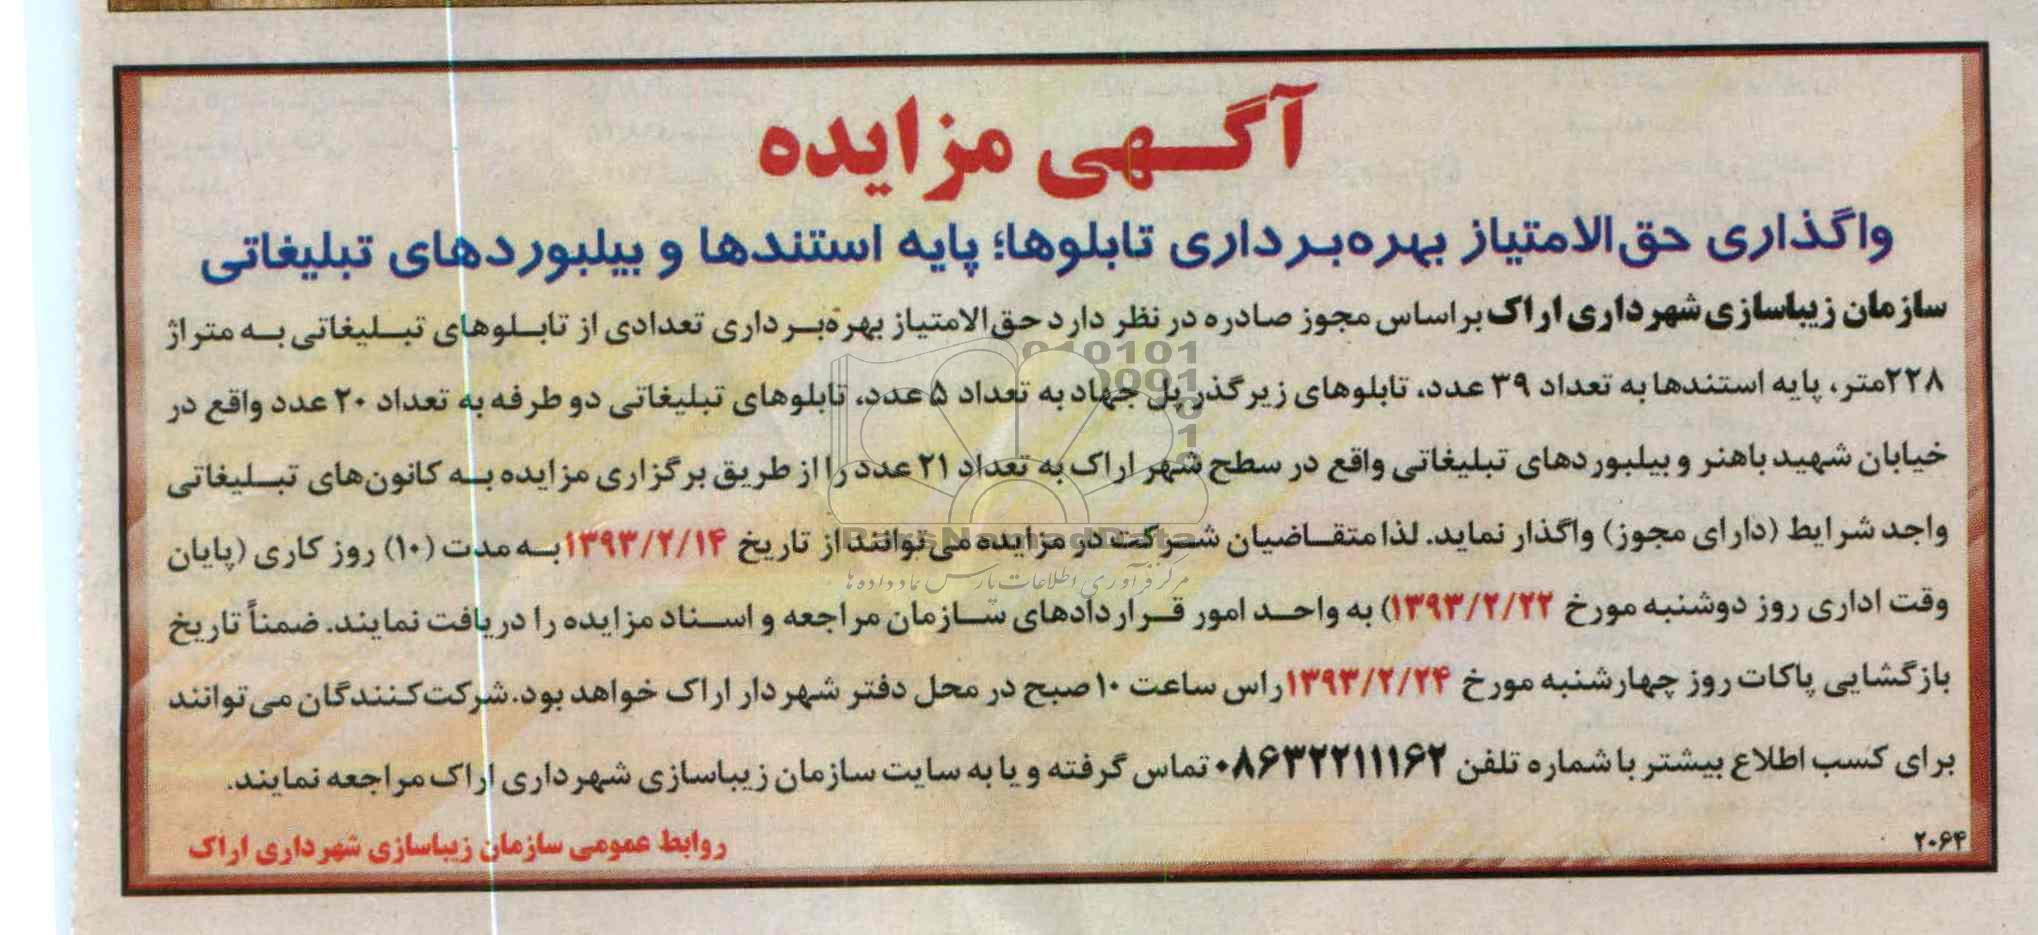 آگهی مزایده
واگذاری حق‌الامتیاز بهره‌برداری تابلوها؛ پایه استندها و بیلبوردهای تبلیغاتی
سازمان زیباسازی شهرداری اراک براساس مجوز صادره در نظر دارد حق‌الامتیاز بهره‌برداری تعدادی از تابلوهای تبلیغاتی به متراژ
۲۲۸متر، پایه استندها به تعداد ۳۹ عدد، تابلوهای زیرگذر پل جهاد به تعداد ۵ عدد، تابلوهای تبلیغاتی دو طرفه به تعداد ۲۰ عدد واقع در
خیابان شهید باهنر و بیلبوردهای تبلیغاتی واقع در سطح شهر اراک به تعداد ۲۱ عدد را از طریق برگزاری مزایده به کانون‌های تبلیغاتی
واجد شرایط (دارای مجوز) واگذار نماید. لذا متقاضیان شرکت در مزایده می‌توانند از تاریخ ۱۳۹۳/۲/۱۴ به مدت (۱۰) روز کاری (پایان
وقت اداری روز دوشنبه مورخ ۱۳۹۳/۲/۲۲) به واحد امور قراردادهای سازمان مراجعه و اسناد مزایده را دریافت نمایند. ضمناً تاریخ
بازگشایی پاکات روز چهارشنبه مورخ ۱۳۹۳/۲/۲۴ راس ساعت ۱۰ صبح در محل دفتر شهردار اراک خواهد بود. شرکت‌کنندگان می‌توانند
برای کسب اطلاع بیشتر با شماره تلفن ۰۸۶۳۲۲۱۱۱۶۲ تماس گرفته و یا به سایت سازمان زیباسازی شهرداری اراک مراجعه نمایند.
۲۰۶۴
روابط عمومی سازمان زیباسازی شهرداری اراک
مرکز فرآوری اطلاعات پارس نماد داده‌ها